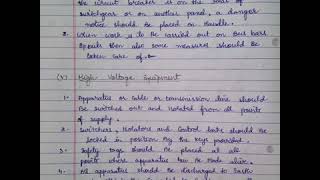 the circuit breaker is on the rear of
switchgear or on another panel, a danger
notice should be placed on Handle.
2. When work is to be carried out on Bus bars
spouts then also some measures should be
taken care of.
(X) High Voltage Equipment
1- Apparatus or cable or transmission line should
be switched out and isolated from all points
of supply.
2- Switches, Isolators and Control Links should be
locked in position by the keys provided.
3- Safety tags should be placed at all
points where apparatus may be made alive.
4- All apparatus should be discharged to Earth